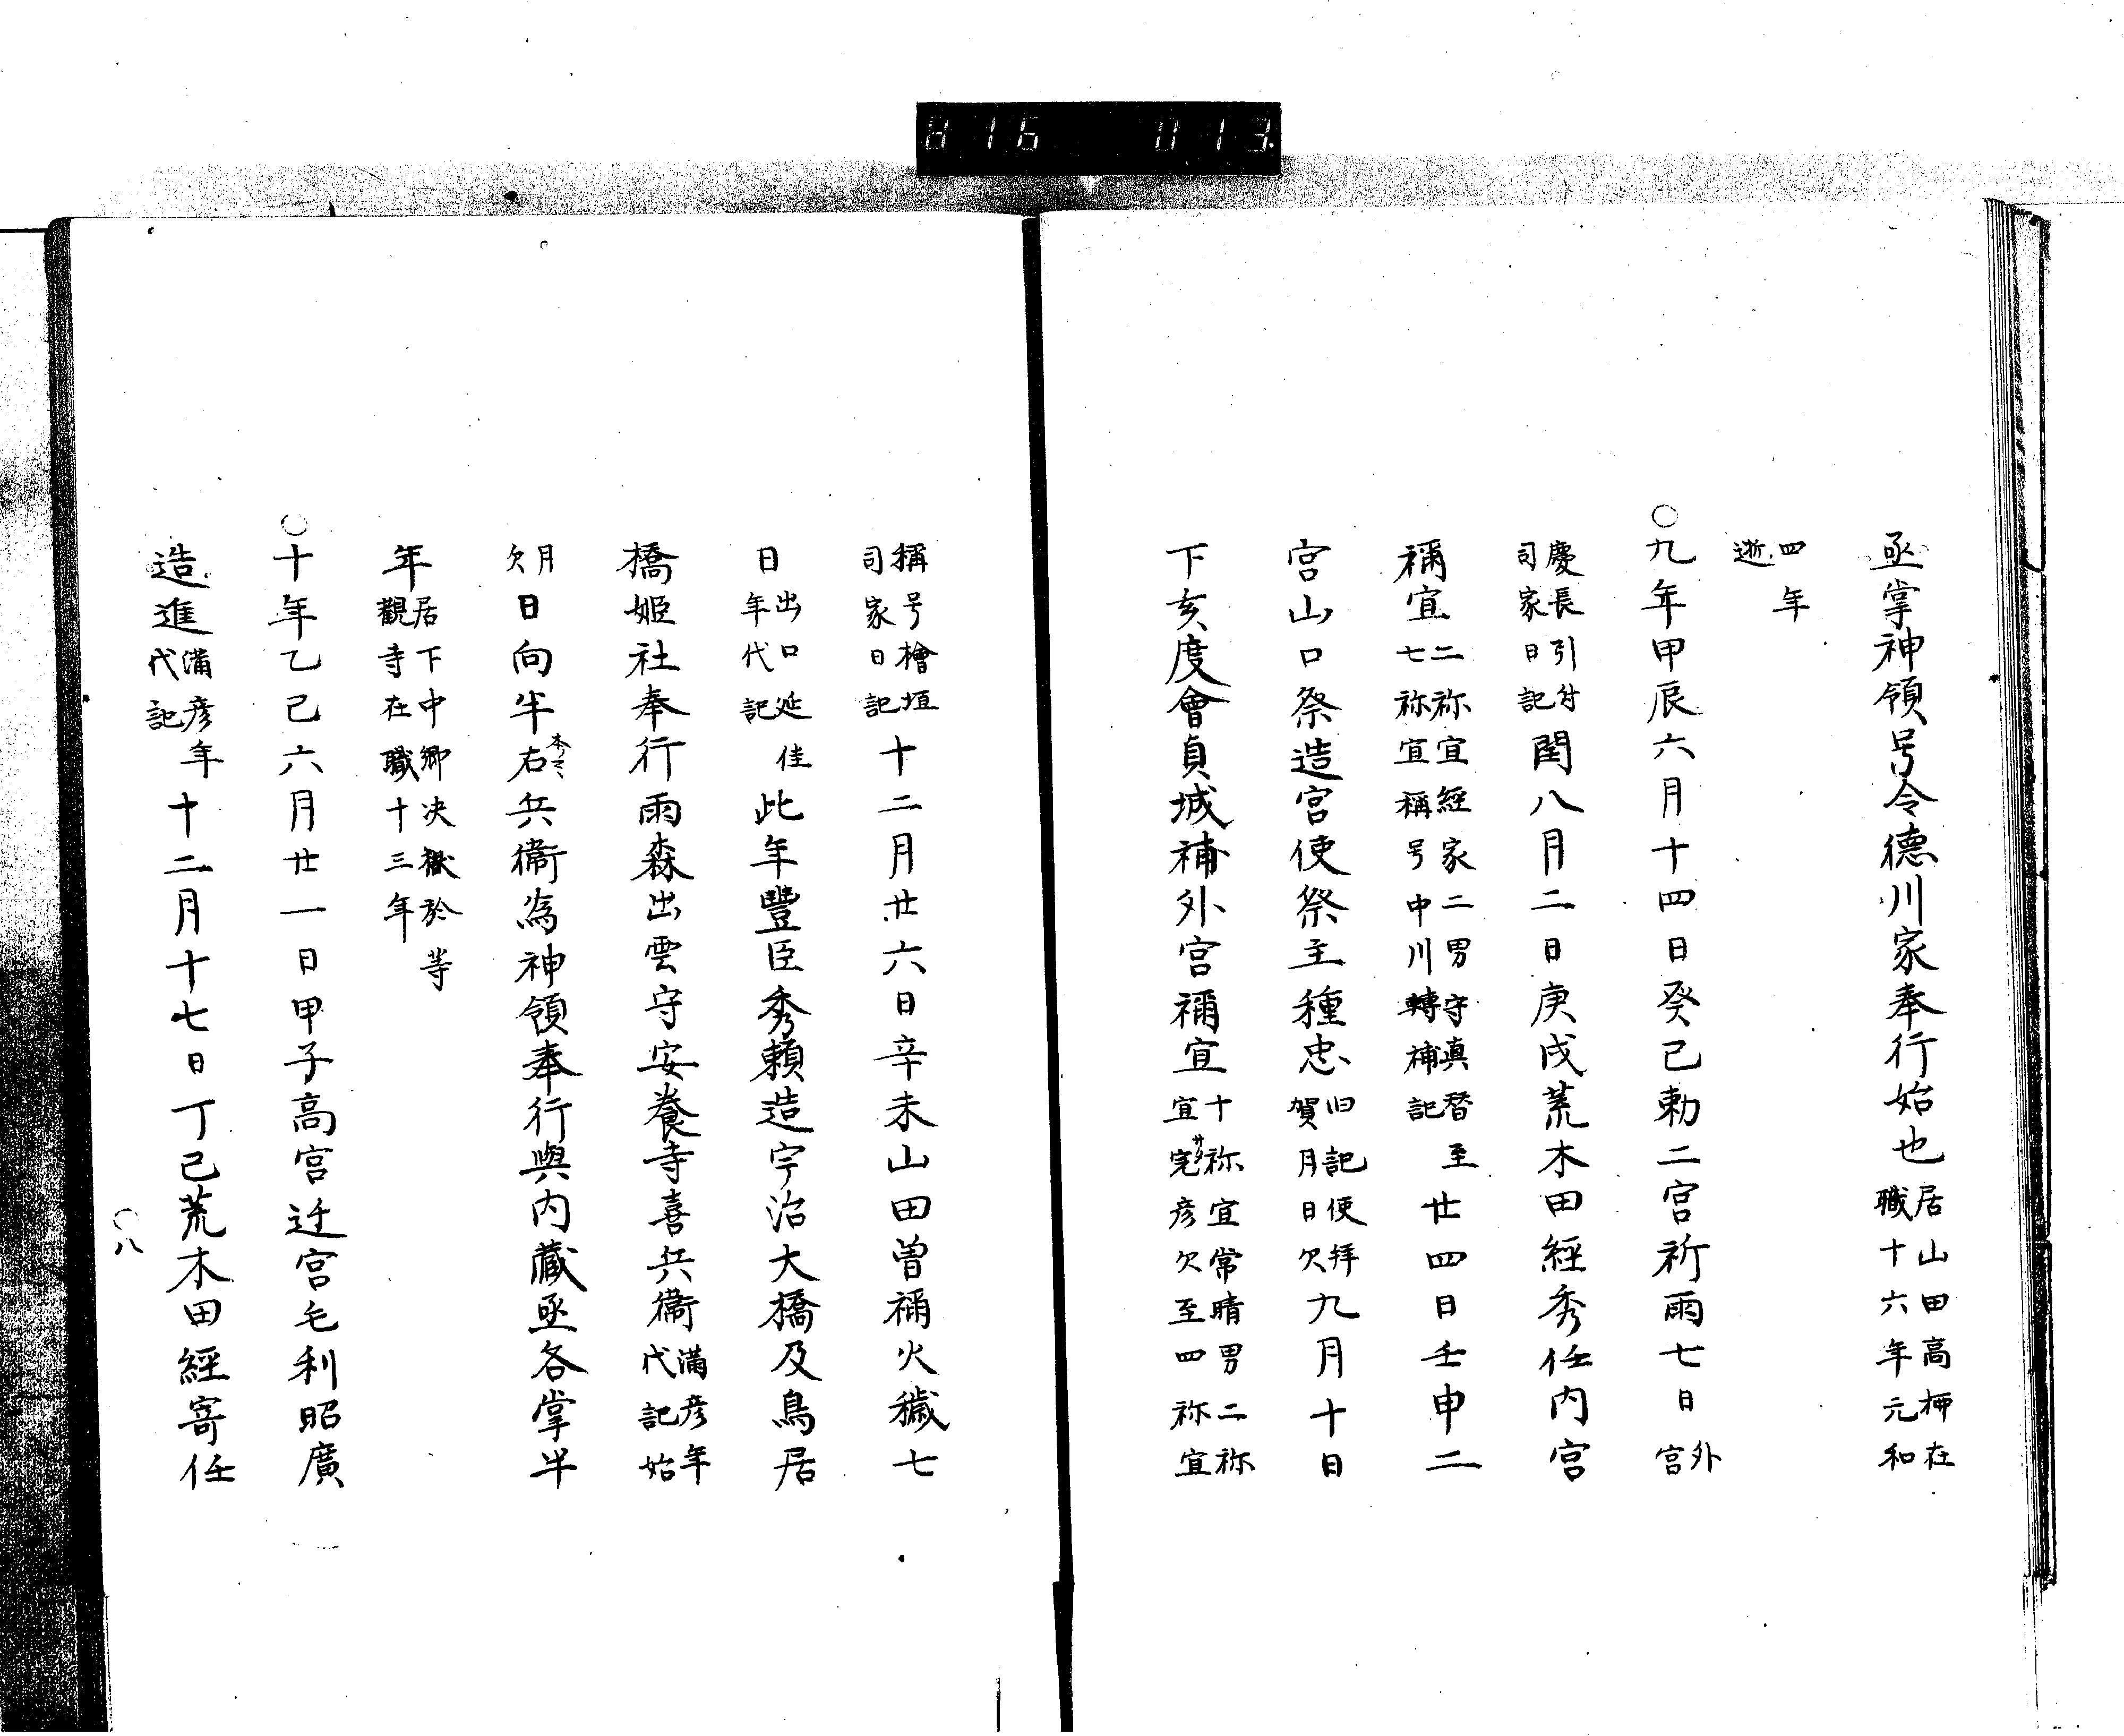 816 013
亟掌神領号令德川家奉行始也居山田高柳在職十六年元和
四年逝
○九年甲辰六月十四日癸已勅二宮祈雨七日外宮
慶長引付司家日記閏八月二日庚戌荒木田經秀任内宮
禰宜二祢宜經家二男守真替七祢宜稱号中川轉補記至廿四日壬申二
宮山口祭造宮使祭主種忠旧記使拜賀月日欠九月十日
下亥度會貞城補外宮禰宜十祢宜常晴男二祢宜完彦欠至四祢宜
稱号檜垣司家日記十二月廿六日辛未山田曽祢火穢七
日出口延佳年代記此年豐臣秀賴造宇治大橋及鳥居
橋姫社奉行雨森出雲守安養寺喜兵衞滿彦年代記始
月欠日向半右兵衞為神領奉行與内藏亟各掌半
年居下中郷决獄於等觀寺在職十三年
○十年乙已六月廿一日甲子高宮迁宮毛利昭廣
造進滿彦年代記十二月十七日丁已荒木田經寄任
○八